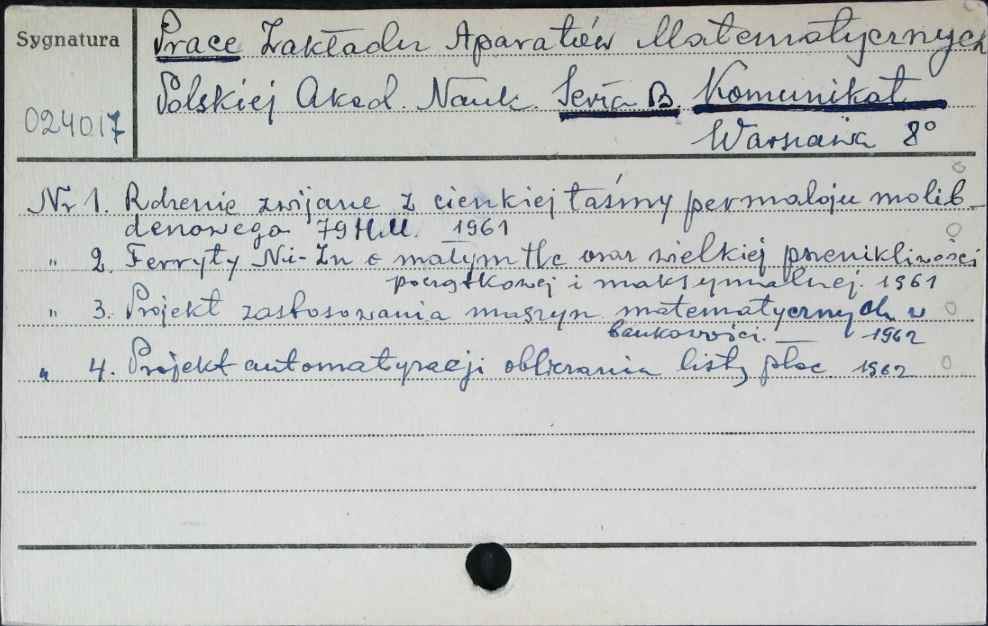 Sygnatura
024017
Prace Zakładu Aparatów Matematycznych
Polskiej Akad. Nauk. Seria B. Komunikat
Warszawa 8°
Nr 1. Rdzenie zwijane z cienkiej taśmy permaloju molib-
denowego 79 H.M. 1961
" 2. Ferryty Ni-Zn o małym tłe oraz wielkiej przenikliwości
początkowej i maksymalnej. 1961
" 3. Projekt zastosowania maszyn matematycznych w
bankowości. — 1962
" 4. Projekt automatyzacji obliczania listy płac 1962